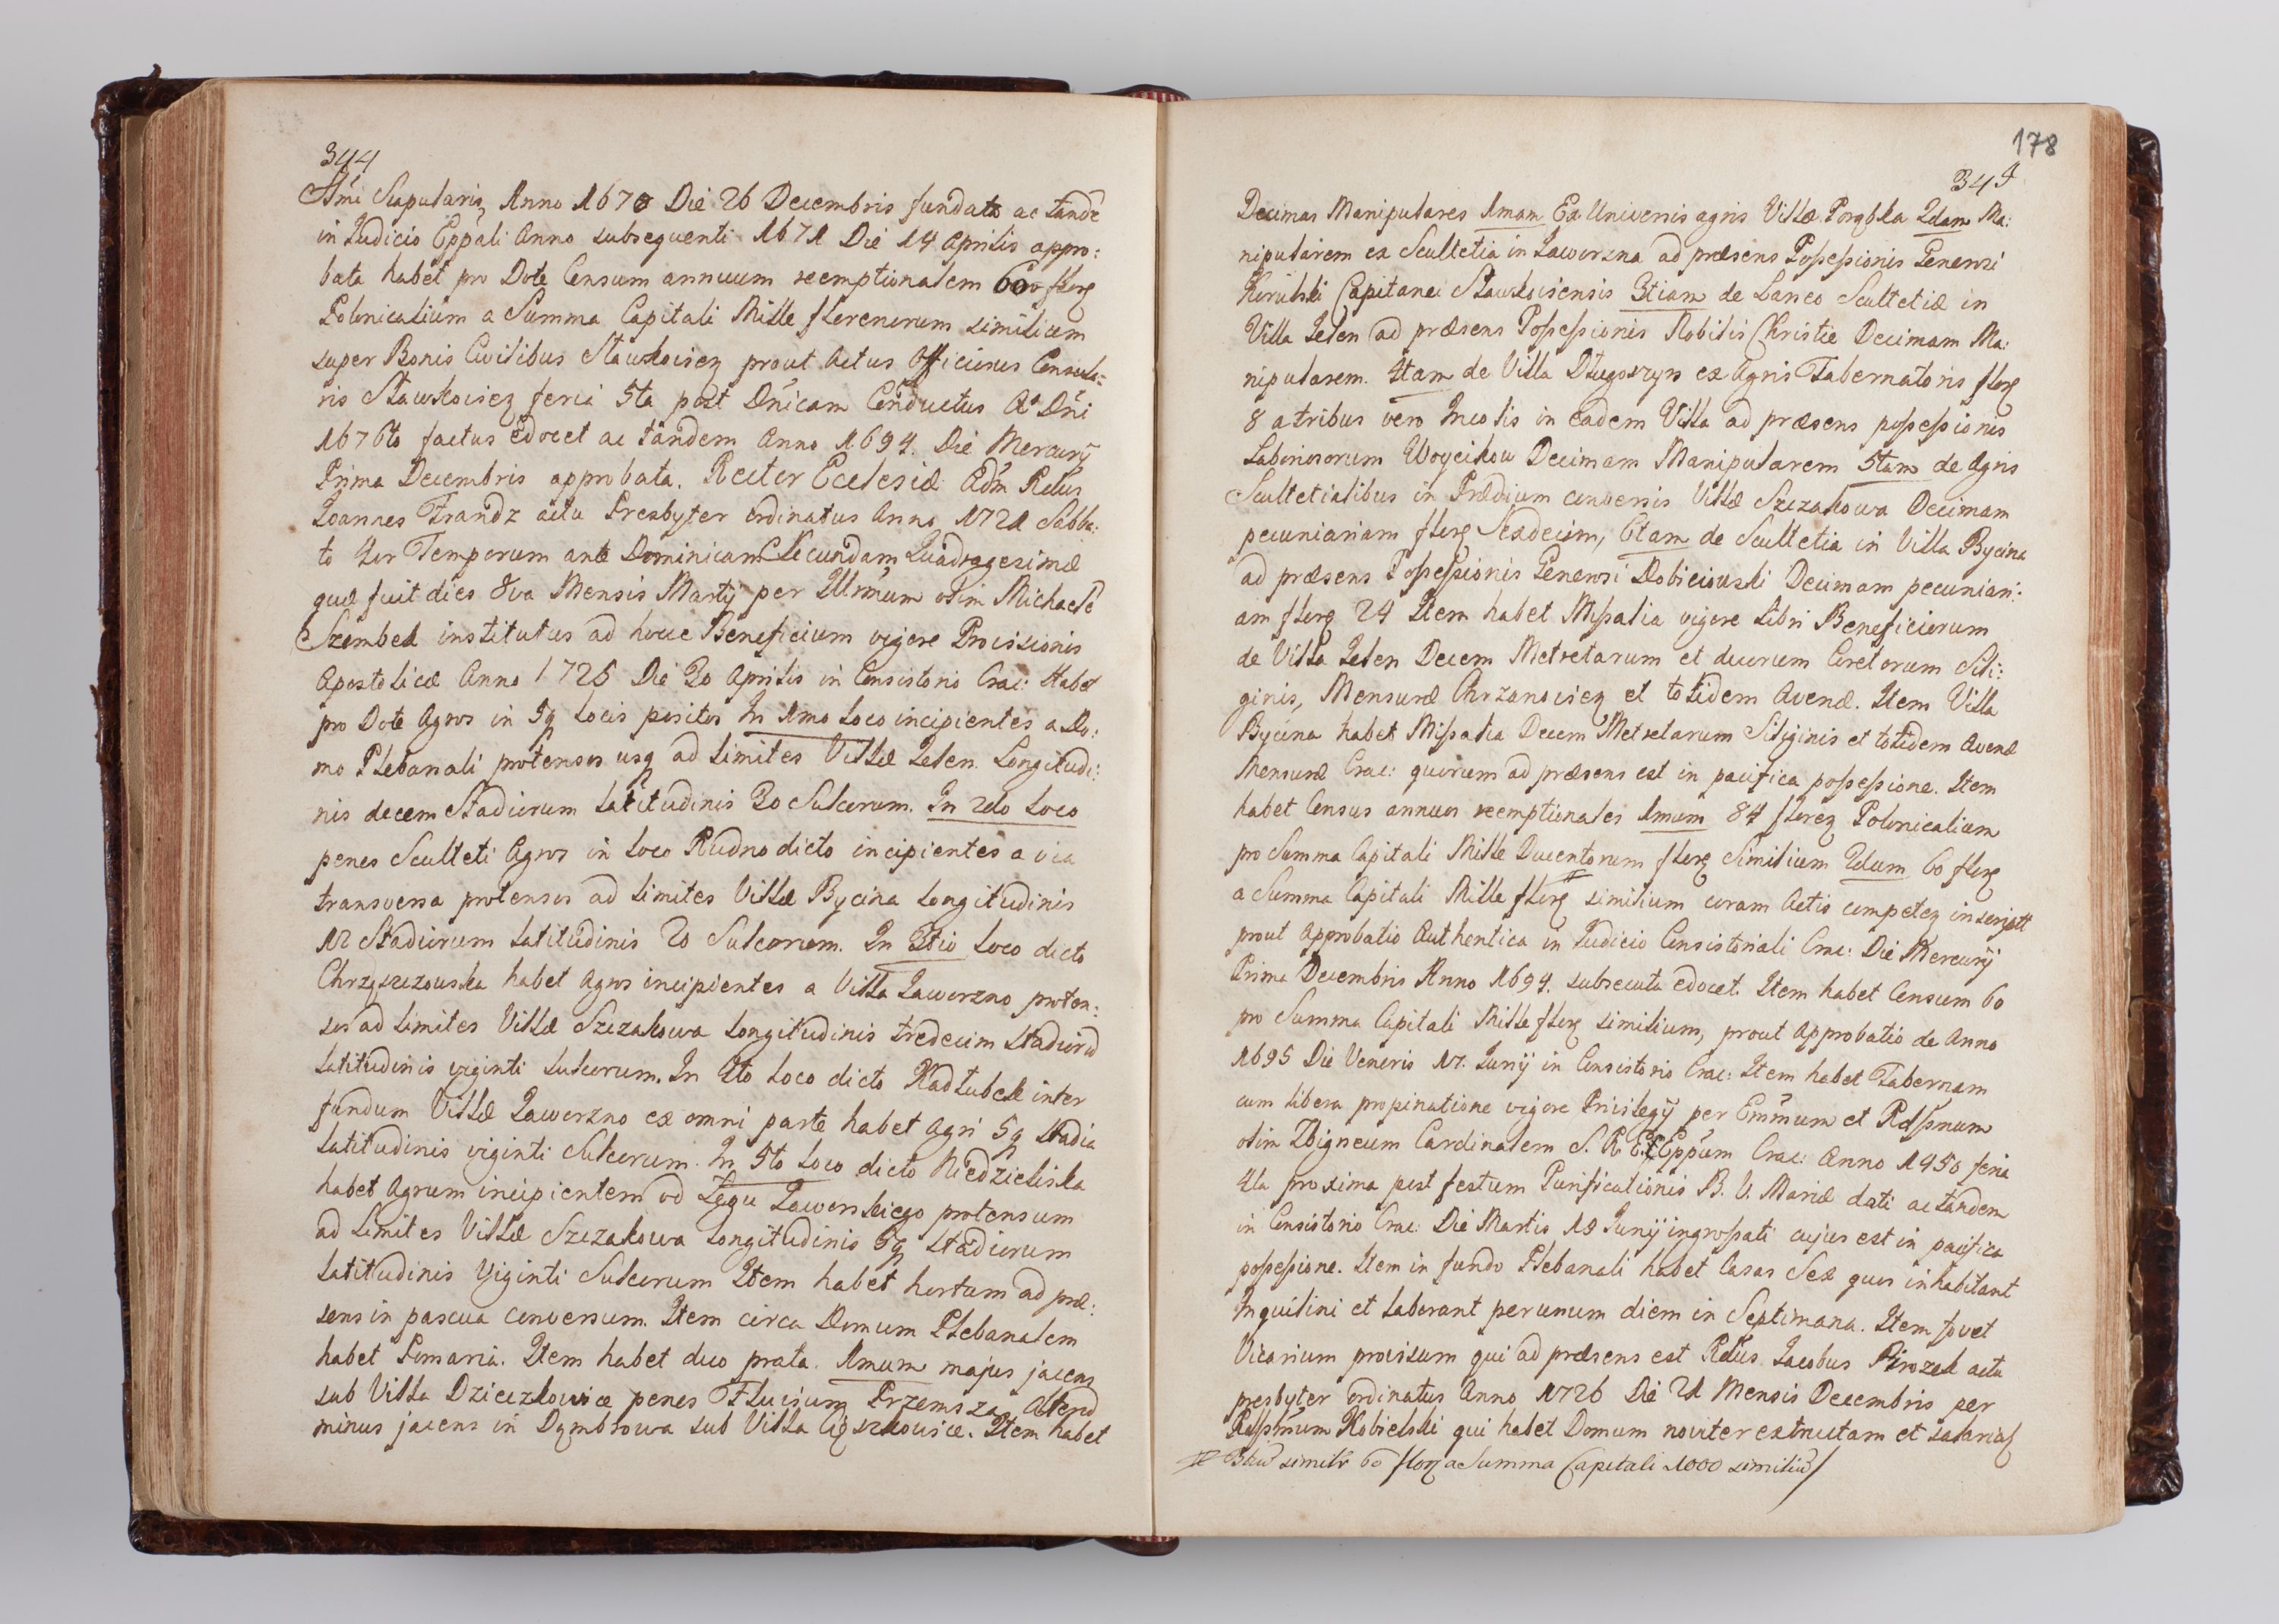 344
Ssmi Scapularis, Anno 1670 Die 26 Decembris fundata ac tande
in Judicio Eppali Anno subsequenti 1671 Die 14 Aprilis appro:
bata habet pro Dote Censum annuum reemptionalem 60 florz
Polonicalium a Summa Capitali Mille florenorum similium
super Bonis Civilibus Sławkoviez prout Actus Officiosus Consula:
ris Sławkoviez feria 5ta post Dnicam Conductus Ao Dni
1676to factus edocet ac tandem Anno 1694. Die Mercurÿ
Prima Decembris approbata. Rector Ecclesiæ Adm Rdus
Joannes Frandz actu Presbyter ordinatus Anno 1721 Sabba:
to 4or Temporum ante Dominicam Secundam Quadragesimæ
quæ fuit dies 8va Mensis Martÿ per Illrmum olim Michaele
Szembek institutus ad hocce Beneficium vigore Provisionis
Apostolicæ Anno 1725 Die 30 Aprilis in Consistorio Crac: Habet
pro Dote Agros in 5q Locis positos In 1mo Loco incipientes a Do:
mo Plebanali protensos usq ad limites Villæ Jelen Longitudi:
nis decem Stadiorum latitudinis 30 Sulcorum. In 2do Loco
penes Sculteti Agros in loco Rudno dicto incipientes a via
transversa protensos ad limites Villæ Bycina longitudinis
12 Stadiorum latitudinis 20 Sulcorum. In 3tio Loco dicto
Chrząszczowska habet Agros incipientes a Villa Jaworzno proten:
sos ad limites Villæ Szczakowa longitudinis tredecim Stadioru
latitudinis viginti sulcorum. In 4to Loco dicto Kadłubek inter
fundum Villæ Jaworzno ex omni parte habet Agri 5q Stadia
latitudinis viginti Sulcorum. In 5to loco dicto Niedzieliska
habet Agrum incipientem od Łęgu Jaworskiego protensum
ad limites Villæ Szczakowa longitudinis 5q Stadiorum
latitudinis Viginti Sulcorum Item habet hortum ad præ:
sens in pascua conversum. Item circa Domum Plebanalem
habet Pomaria. Item habet duo prata. 1mum majus jacens
sub Villa Dziećkowice penes Fluvium Przemsza, Alterũ
minus jacens in Dąmbrowa sub Villa Ciężkovice. Item habet
178
345
Decimas Manipulares 1mam Ex Universis agris Villæ Porąbka 2dam Ma:
nipularem ex Scultetia in Jaworzna ad præsens Possessionis Generosi
Capitanei Sławkoviensis 3tiam de Laneo Scultetiæ in
Villa Jelen ad præsens Possessionis Nobilis Christie Decimam Ma:
nipularem. 4tam de Villa Długoszyn ex Agris Tabernatoris florz
8 a tribus vero Incolis in eadem Villa ad præsens possessionis
Laboriosorum Woycikow Decimam Manipularem 5tam de Agris
Scultetialibus in Prædium conversis Villæ Szczakowa Decimam
pecuniariam florz Sexdecim, 6tam de Scultetia in Villa Bycina
ad præsens Possessionis Generosi Dobiciowski Decimam pecuniari:
am florz 24 Item habet Missalia vigore Libri Beneficiorum
de Villa Jelen Decem Metretarum et duorum Coretorum Sili:
ginis, Mensuræ Chrzanoviez et totidem Avenæ. Item Villa
Bycina habet Missalia Decem Metretarum Siliginis et totidem Avenæ
Mensuræ Crac: quorum ad præsens est in pacifica possessione. Item
habet Census annuos reemptionales 1mum 84 florez Polonicalium
pro Summa Capitali Mille Ducentorum florz Similium 2dum 60 florz
a Summa Capitali Mille florz similium coram Actis competez inscript
prout Approbatio Authentica in Judicio Consistoriali Crac: Die Mercurÿ
Prima Decembris Anno 1694. subsecuta edocet. Item habet Censum 60
pro Summa Capitali Mille florz similium, prout Approbatio de Anno
1695 Die Veneris 17. Junÿ in Consistorio Crac: Item habet Tabernam
cum libera propinatione vigore Privilegÿ per Emmum et Rdssmum
olim Zbigneum Cardinalem S. R. E. Eppum Crac: Anno 1450 feria
4ta proxima post festum Purificationis B. V. Mariæ dati ac tandem
in Consistorio Crac: Die Martis 18 Junÿ ingrossati cujus est in pacifica
possessione. Item in fundo Plebanali habet Casas Sex quos inhabitant
Inquilini et laborant per unum diem in Septimana. Item fovet
Vicarium provisum qui ad præsens est Rdus Jacobus Pirozek actu
presbyter ordinatus Anno 1726 Die 21 Mensis Decembris per
Rdssmum Kobielski qui habet Domum noviter extructam et salarias
# 3tiũ similr 60 florz a Summa Capitali 1000 similiũ